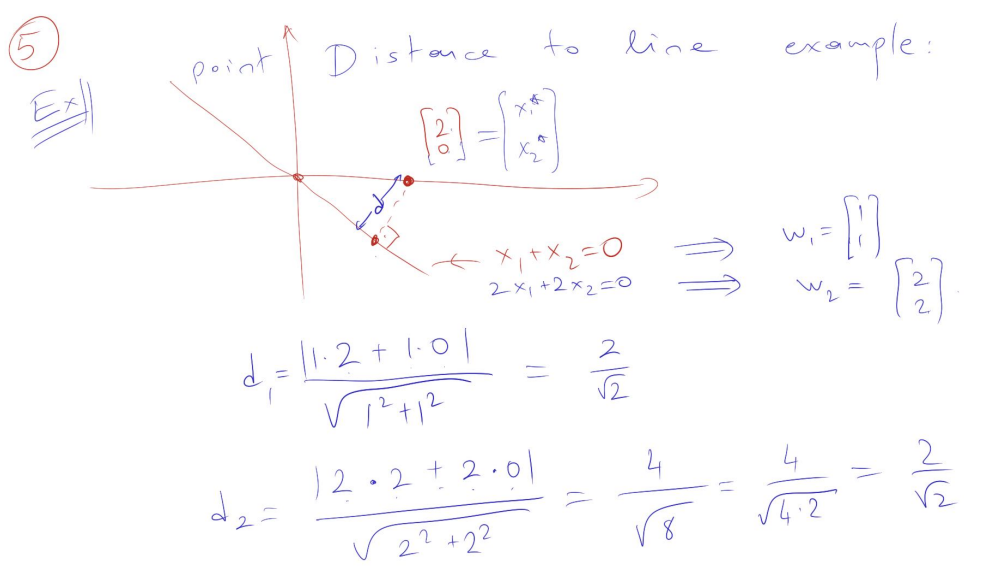 5
point Distance to line example:
Ex
[2 0] = [x₁* x₂*]
d
x₁ + x₂ = 0 ⇒ w₁ = [1 1]
2x₁ + 2x₂ = 0 ⇒ w₂ = [2 2].
d₁ = |1·2 + 1·0| / √(1² + 1²) = 2/√2
d₂ = |2·2 + 2·0| / √(2² + 2²) = 4/√8 = 4/√(4·2) = 2/√2